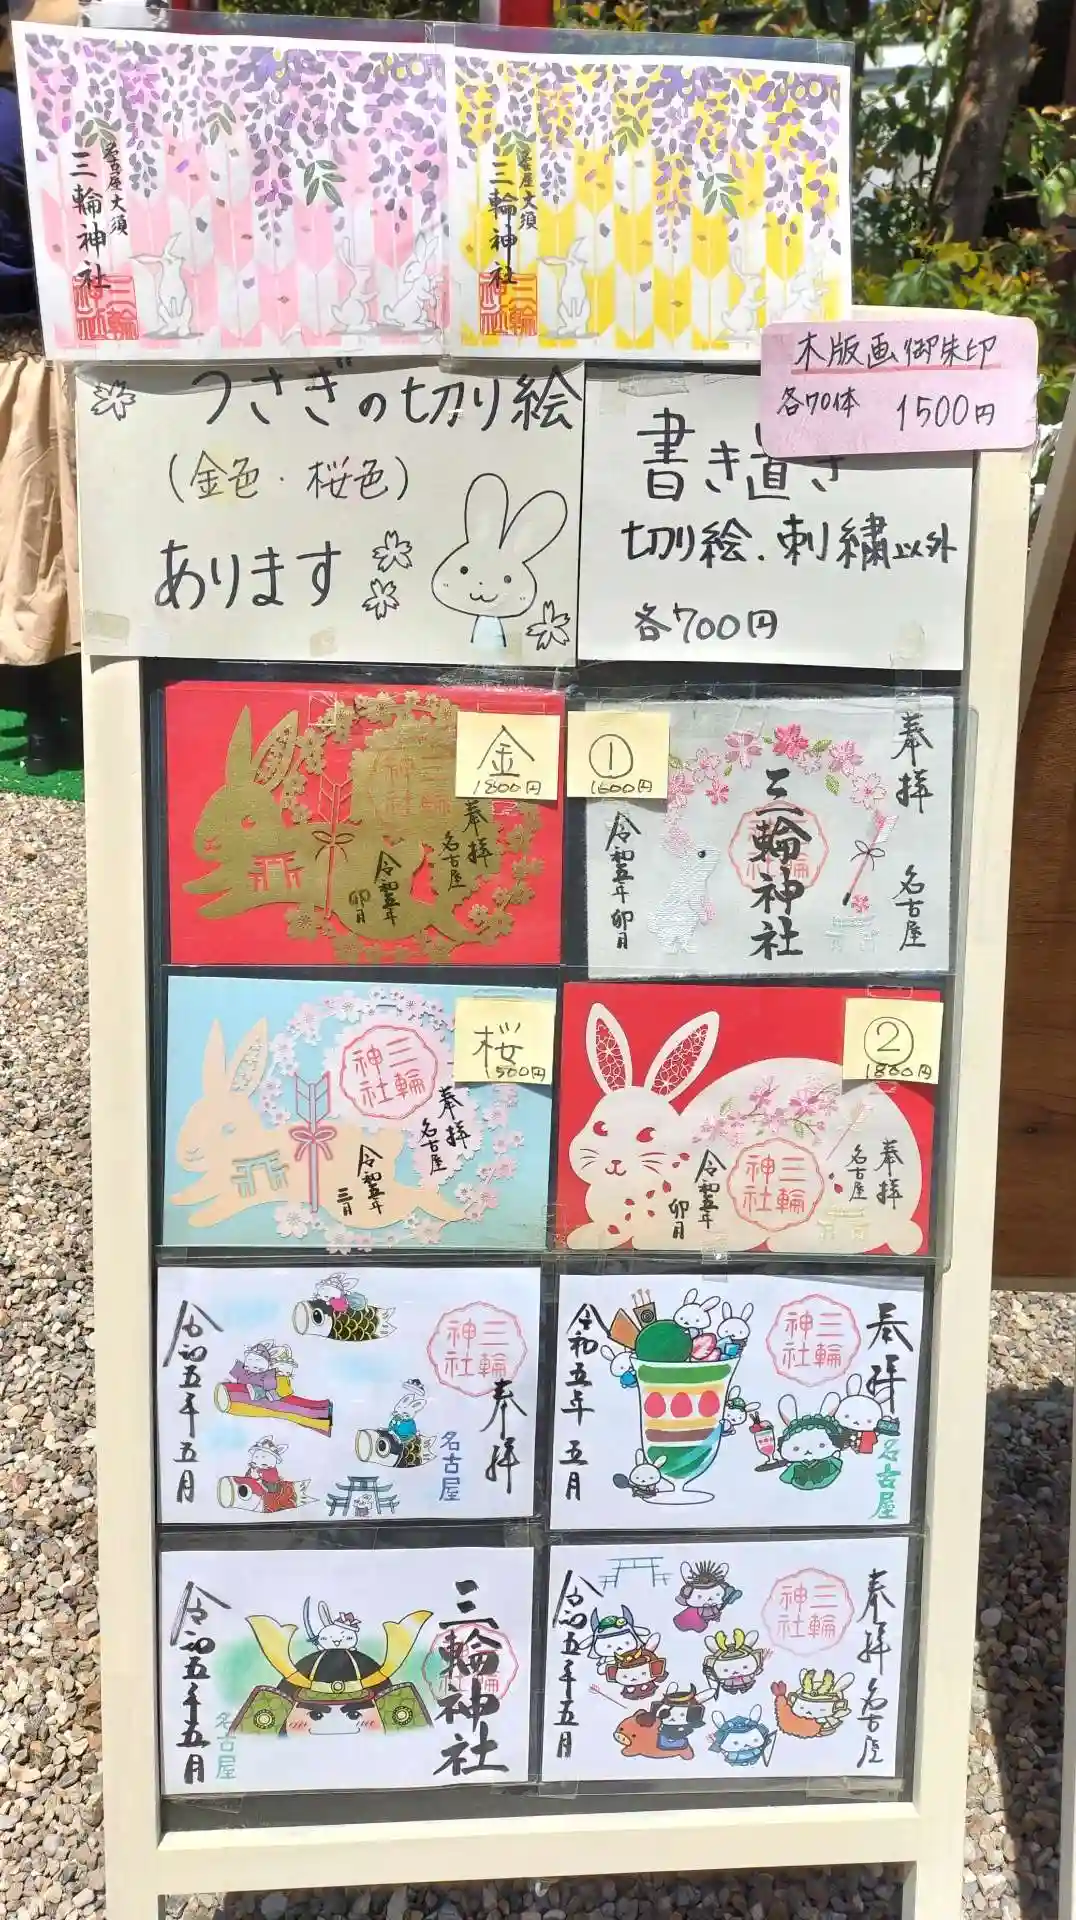 名古屋大須
三輪神社
三輪
神社
名古屋大須
三輪神社
三輪
神社
木版画御朱印
各70体 1500円
うさぎの切り絵
(金色・桜色)
あります
書き直き
切り絵.刺繍以外
各700円
金
1800円
三輪
神社
奉拝
名古屋
令和五年
卯月
①
1600円
奉拝
三輪神社
三輪
神社
名古屋
令和五年卯月
桜
1500円
三輪
神社
奉拝
名古屋
令和五年
三月
②
1800円
奉拝
名古屋
三輪
神社
令和五年
卯月
三輪
神社
奉拝
名古屋
令和五年五月
奉拝
三輪
神社
名古屋
令和五年五月
三輪神社
令和五年五月
名古屋
奉拝名古屋
三輪
神社
令和五年五月